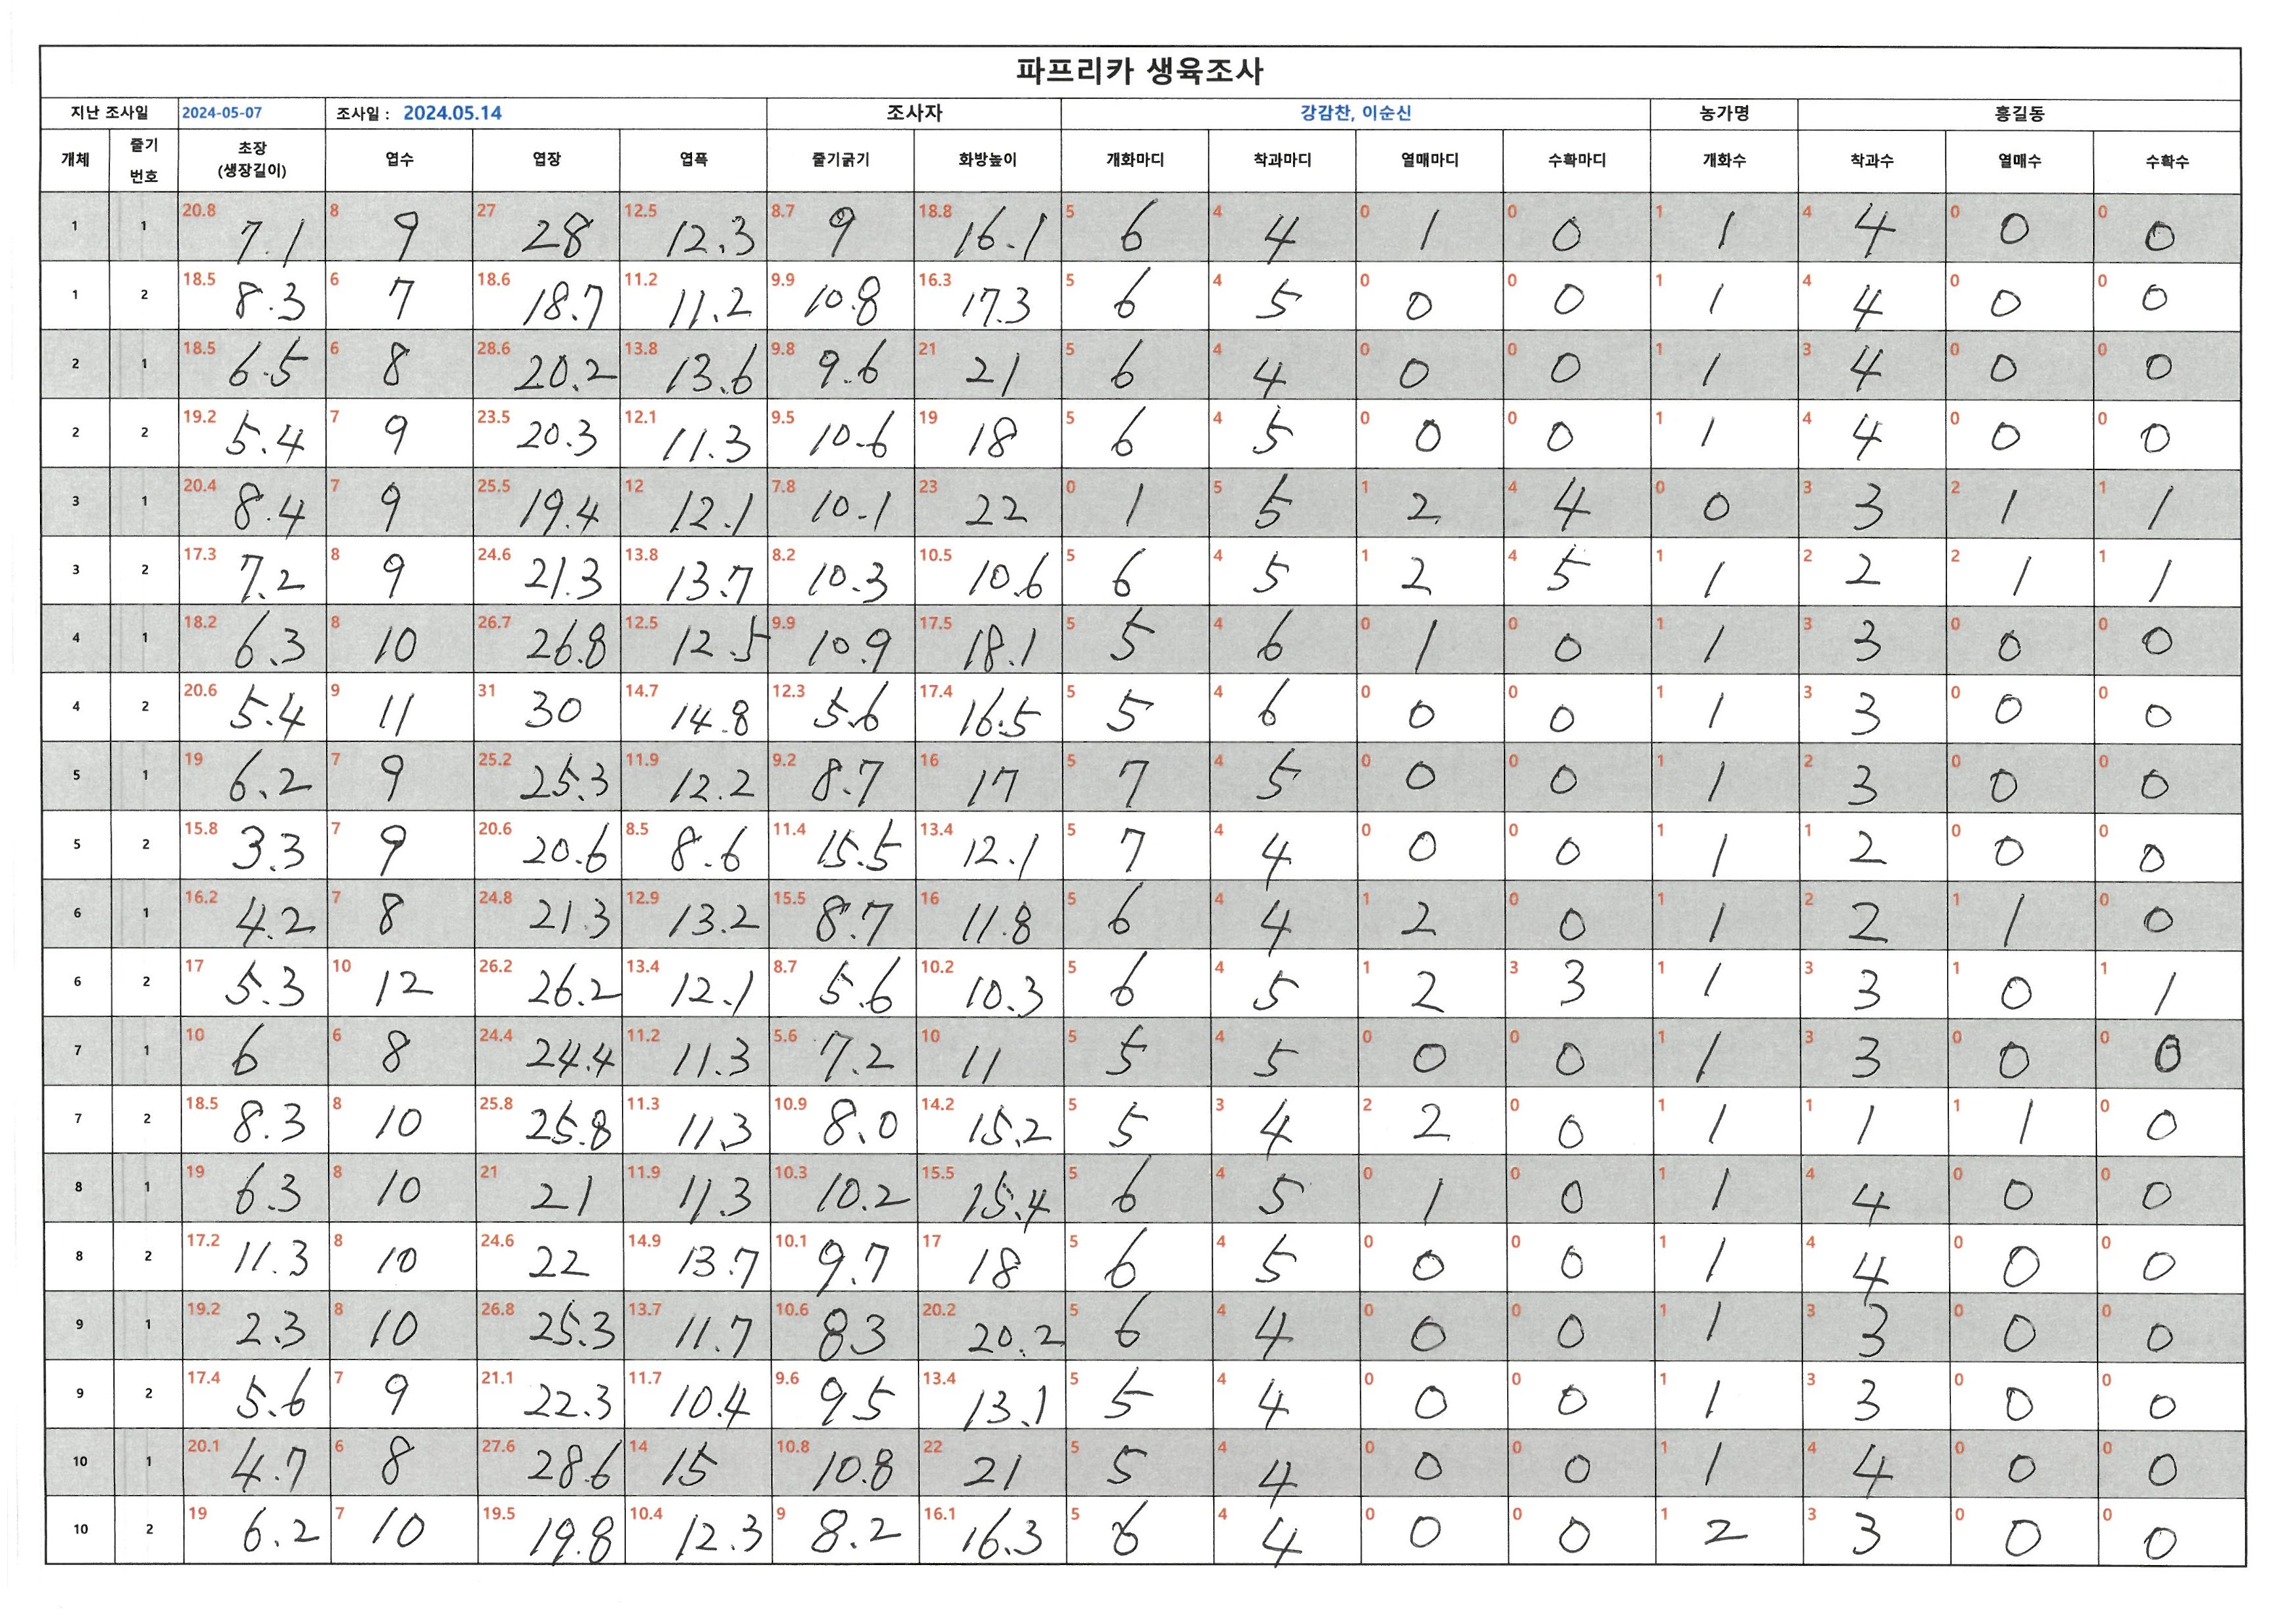 파프리카 생육조사
지난 조사일 2024-05-07 조사일 : 2024.05.14 조사자 강감찬, 이순신 농가명 홍길동
개체 줄기 번호 초장 (생장길이) 엽수 엽장 엽폭 줄기굵기 화방높이 개화마디 착과마디 열매마디 수확마디 개화수 착과수 열매수 수확수
1 1 20.8 7.1 8 9 27 28 12.5 12.3 8.7 9 18.8 16.1 5 6 4 4 0 1 0 0 1 1 4 4 0 0 0 0
1 2 18.5 8.3 6 7 18.6 18.7 11.2 11.2 9.9 10.8 16.3 17.3 5 6 4 5 0 0 0 0 1 1 4 4 0 0 0 0
2 1 18.5 6.5 6 8 28.6 20.2 13.8 13.6 9.8 9.6 21 21 5 6 4 4 0 0 0 0 1 1 3 4 0 0 0 0
2 2 19.2 5.4 7 9 23.5 20.3 12.1 11.3 9.5 10.6 19 18 5 6 4 5 0 0 0 0 1 1 4 4 0 0 0 0
3 1 20.4 8.4 7 9 25.5 19.4 12 12.1 7.8 10.1 23 22 0 1 5 5 1 2 4 4 0 0 3 3 2 1 1 1
3 2 17.3 7.2 8 9 24.6 21.3 13.8 13.7 8.2 10.3 10.5 10.6 5 6 4 5 1 2 4 5 1 1 2 2 2 1 1 1
4 1 18.2 6.3 8 10 26.7 26.8 12.5 12.5 9.9 10.9 17.5 18.1 5 5 4 6 0 1 0 0 1 1 3 3 0 0 0 0
4 2 20.6 5.4 9 11 31 30 14.7 14.8 12.3 5.6 17.4 16.5 5 5 4 6 0 0 0 0 1 1 3 3 0 0 0 0
5 1 19 6.2 7 9 25.2 25.3 11.9 12.2 9.2 8.7 16 17 5 7 4 5 0 0 0 0 1 1 2 3 0 0 0 0
5 2 15.8 3.3 7 9 20.6 20.6 8.5 8.6 11.4 15.5 13.4 12.1 5 7 4 4 0 0 0 0 1 1 1 2 0 0 0 0
6 1 16.2 4.2 7 8 24.8 21.3 12.9 13.2 15.5 8.7 16 11.8 5 6 4 4 1 2 0 0 1 1 2 2 1 1 0 0
6 2 17 5.3 10 12 26.2 26.2 13.4 12.1 8.7 5.6 10.2 10.3 5 6 4 5 1 2 3 3 1 1 3 3 1 0 1 1
7 1 10 6 6 8 24.4 24.4 11.2 11.3 5.6 7.2 10 11 5 5 4 5 0 0 0 0 1 1 3 3 0 0 0 0
7 2 18.5 8.3 8 10 25.8 25.8 11.3 11.3 10.9 8.0 14.2 15.2 5 5 3 4 2 2 0 0 1 1 1 1 1 1 0 0
8 1 19 6.3 8 10 21 21 11.9 11.3 10.3 10.2 15.5 15.4 5 6 4 5 0 1 0 0 1 1 4 4 0 0 0 0
8 2 17.2 11.3 8 10 24.6 22 14.9 13.7 10.1 9.7 17 18 5 6 4 5 0 0 0 0 1 1 4 4 0 0 0 0
9 1 19.2 2.3 8 10 26.8 25.3 13.7 11.7 10.6 83 20.2 20.2 5 6 4 4 0 0 0 0 1 1 3 3 0 0 0 0
9 2 17.4 5.6 7 9 21.1 22.3 11.7 10.4 9.6 95 13.4 13.1 5 5 4 4 0 0 0 0 1 1 3 3 0 0 0 0
10 1 20.1 4.7 6 8 27.6 28.6 14 15 10.8 10.8 22 21 5 5 4 4 0 0 0 0 1 1 4 4 0 0 0 0
10 2 19 6.2 7 10 19.5 19.8 10.4 12.3 9 8.2 16.1 16.3 5 6 4 4 0 0 0 0 1 2 3 3 0 0 0 0